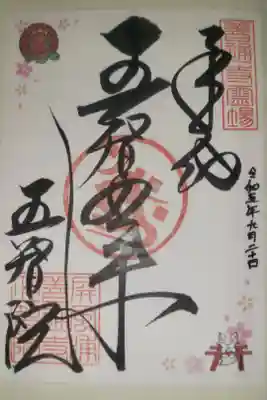 善通寺霊場
奉拝
令和五年九月二十日
五智如来
五智院